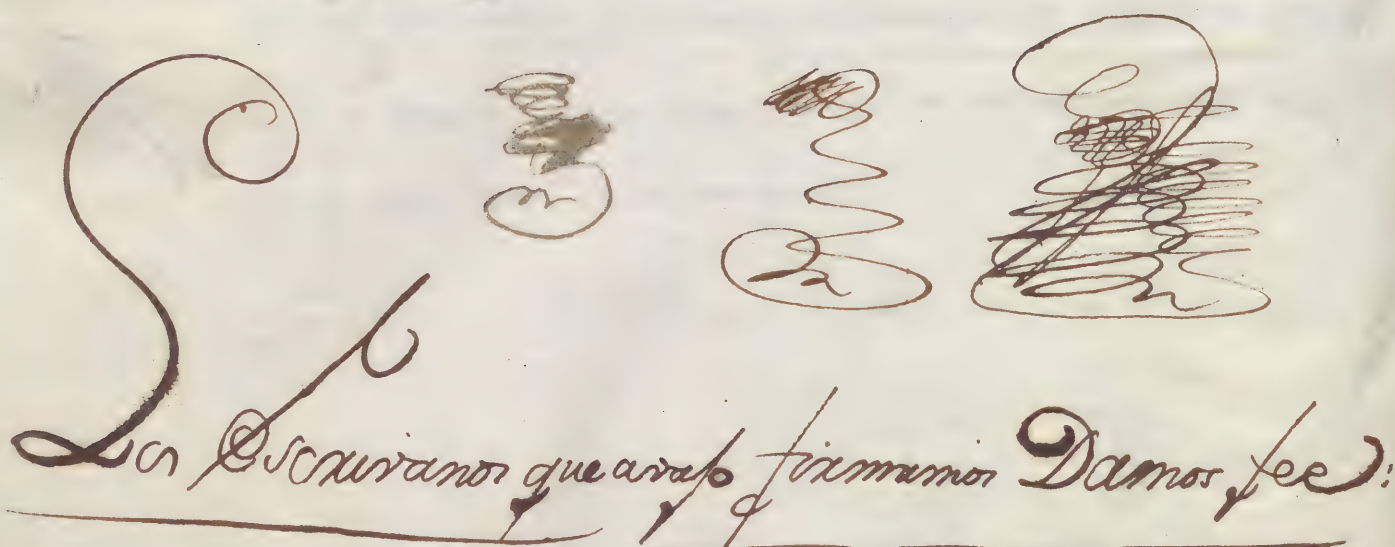 Los Escrivanos que avajo firmamos Damos fee: